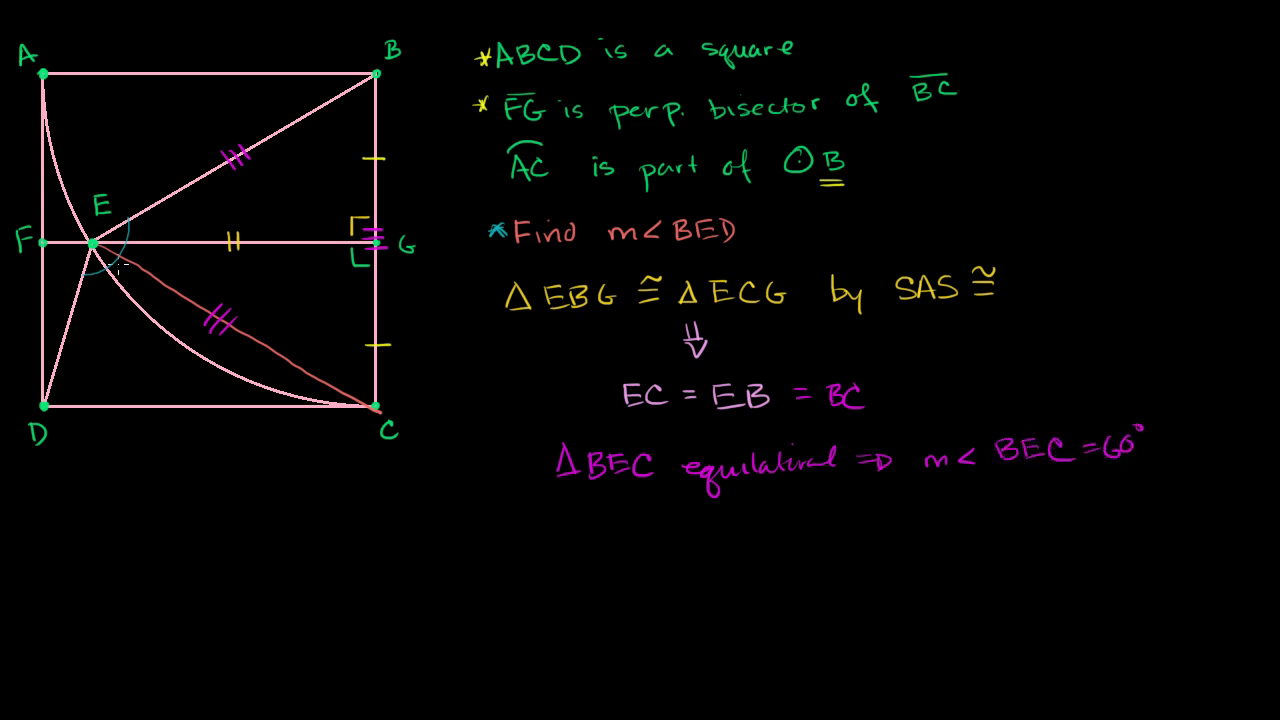 A
B
E
F
G
D
C
*ABCD is a square
* FG is perp. bisector of BC
AC is part of ⊙B
*Find m<BED
Δ EBG ≅ Δ ECG by SAS ≅
⇓
EC = EB = BC
ΔBEC equilateral ⇒ m< BEC = 60°